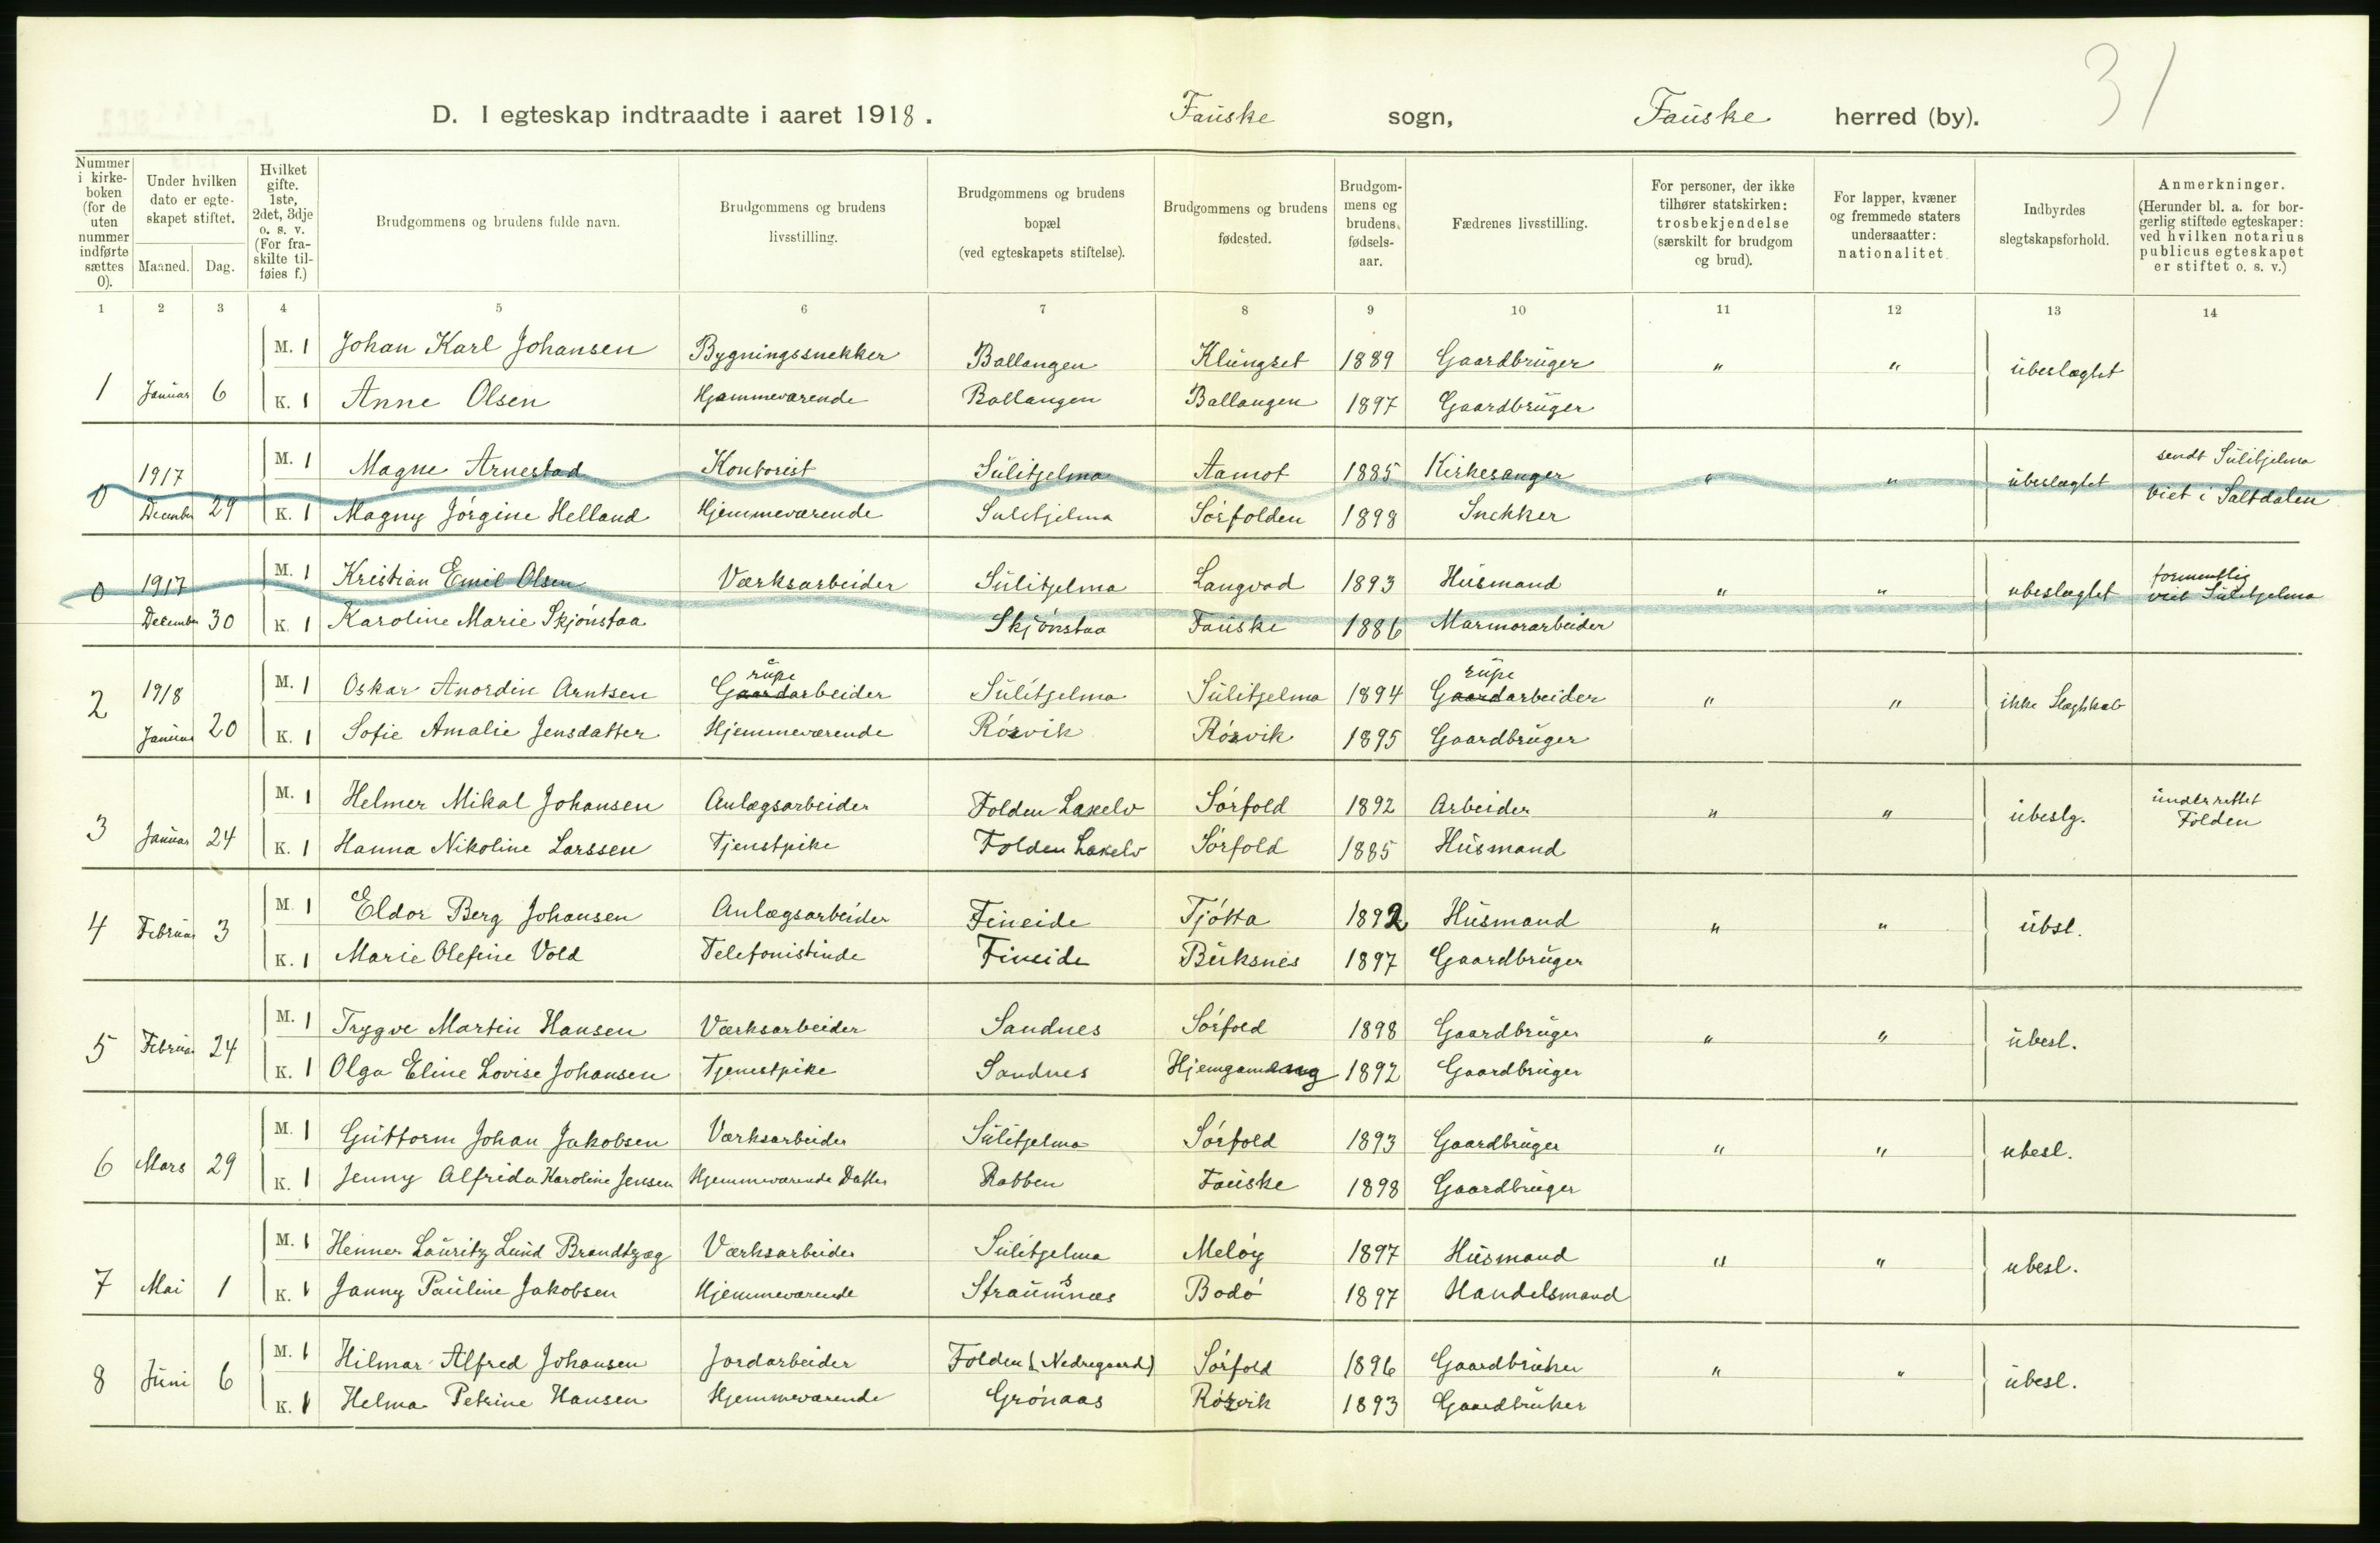 31
D. I egteskap indtraadte i aaret 1918. Fauske sogn, Fauske herred (by).
Nummer i kirke-boken (for de uten nummer indførte sættes 0). Under hvilken dato er egte-skapet stiftet. Maaned. Dag. Hvilket gifte. 1ste, 2det, 3dje o. s. v. (For fra-skilte til-føies f.) Brudgommens og brudens fulde navn. Brudgommens og brudens livsstilling. Brudgommens og brudens bopæl (ved egteskapets stiftelse). Brudgommens og brudens fødested. Brudgom-mens og brudens fødsels-aar. Fædrenes livsstilling. For personer, der ikke tilhører statskirken: trosbekjendelse (særskilt for brudgom og brud). For lapper, kvæner og fremmede staters undersaatter: nationalitet. Indbyrdes slegtskapsforhold. Anmerkninger. (Herunder bl. a. for bor-gerlig stiftede egteskaper: ved hvilken notarius publicus egteskapet er stiftet o. s. v.)
1 2 3 4 5 6 7 8 9 10 11 12 13 14
M. 1 Johan Karl Johansen Bygningssnekker Ballangen Klungset 1889 Gaardbruger
1 Januar 6 " " ubeslægtet
K. 1 Anne Olsen Hjemmeværende Ballangen Ballangen 1897 Gaardbruger
1917 M. 1 Magne Arnestad Kontorist Sulitjelma Aamot 1885 Kirkesanger " " ubeslægtet sendt Sulitjelma
0 December 29 K. 1 Magny Jørgine Helland Hjemmeværende Sulitjelma Sørfolden 1898 Snekker viet i Saltdalen
0 1917 M. 1 Kristian Emil Olsen Værksarbeider Sulitjelma Langvad 1893 Husmand " " ubeslægtet formentlig viet Sulitjelma
December 30 K. 1 Karoline Marie Skjønstaa Skjønstaa Fauske 1886 Marmorarbeider
rube rube
2 1918 M. 1 Oskar Anordin Arntsen Gaardarbeider Sulitjelma Sulitjelma 1894 Gaardarbeider " " ikke Slægtskab
Januar 20 K. 1 Sofie Amalie Jensdatter Hjemmeværende Røsvik Røsvik 1895 Gaardbruger
M. 1 Helmer Mikal Johansen Anlægsarbeider Folden Lakselv Sørfold 1892 Arbeider " " ubeslg. underrettet Folden
3 Januar 24 K. 1 Hanna Nikoline Larssen Tjenstpike Folden Lakselv Sørfold 1885 Husmand
M. 1 Eldor Berg Johansen Anlægsarbeider Fineide Tjøtta 1892 Husmand
4 Februar 3 " " übsl.
K. 1 Marie Olefine Vold Telefonistinde Fineide Buksnes 1897 Gaardbruger
M. 1 Trygve Martin Hansen Værksarbeider Sandnes Sørfold 1898 Gaardbruger
5 Februar 24 " " ubesl.
K. 1 Olga Eline Lovise Johansen Tjenestpike Sandnes 1892 Gaardbruger
M. 1 Guttorm Johan Jakobsen Værksarbeider Sulitjelma Sørfold 1893 Gaardbruger
6 Mars 29 " " ubesl.
K. 1 Jenny Alfrida Karoline Jensen Hjemmeværende Datter Rabben Fauske 1898 Gaardbruger
M. 1 Henner Lauritz Lund Brandtzæg Værksarbeider Sulitjelma Meløy 1897 Husmand " " ubesl.
7 Mai 1 K. 1 Janny Pauline Jakobsen Hjemmeværende Straumsnæs Bodø 1897 Handelsmand
M. 1 Hilmar Alfred Johansen Jordarbeider Folden (Nedregaard) Sørfold 1896 Gaardbruker
8 Juni 6 " " ubesl.
K. 1 Helma Petrine Hansen Hjemmeværende Grønaas Røsvik 1893 Gaardbruker